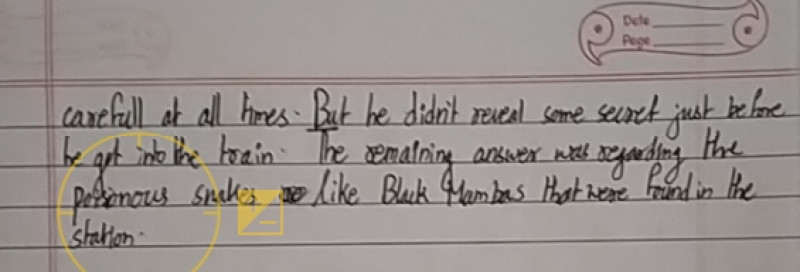 Date
Page
carefull at all times. But he didn't reveal some secret just before
he got into the train. The remaining answer was regarding the
poisonous snakes like Black Mambas that were found in the
station.